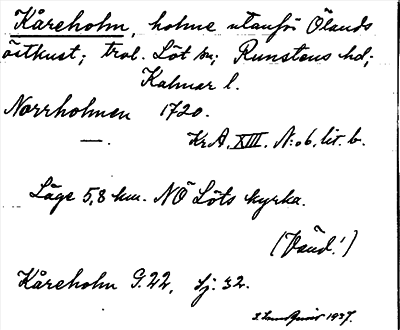 Kåreholm, holme utanför Ölands
östkust; trol. Löt sn; Runstens hd;
Kalmar l.
Norrholmen 1720.
—. Kr A, XIII, N:o 6, lit. b.
Läge 5,8 km. NÖ Löts kyrka.
(Vänd!)
Kåreholm G. 22, Sj: 32.
1937.